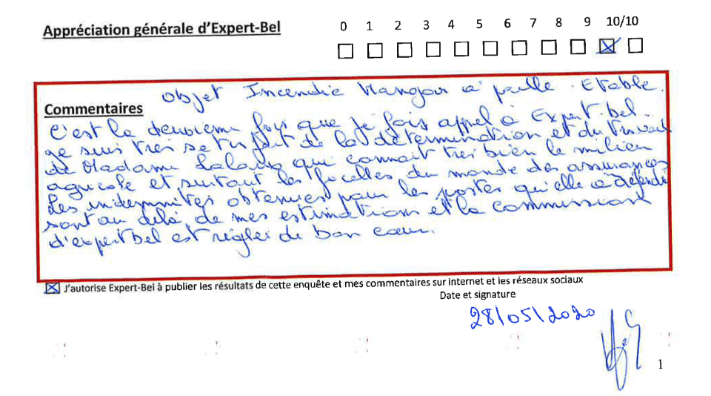 Appréciation générale d'Expert-Bel
0 1 2 3 4 5 6 7 8 9 10/10
Objet Incendie Hangar à paille. Etable.
Commentaires
C'est la deuxieme fois que je fais appel à Expert-bel.
Je suis tres satisfait de la détermination et du travail
de Madame qui connait tres bien le milieu
agricole et surtout les ficelles du monde des assurances
Les indemnités obtenues pour les postes qu'elle a défendu
sont au délà de mes estimations et la commission
d'expertbel est réglée de bon cœur.
J'autorise Expert-Bel à publier les résultats de cette enquête et mes commentaires sur internet et les réseaux sociaux
Date et signature
28/05/2020
1